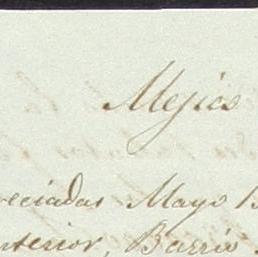 Mejico
reciadas Mayo 1
nterior, Barrio